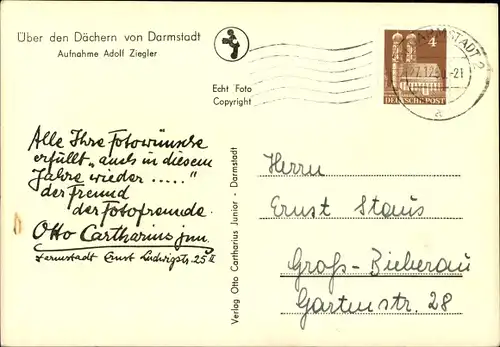 Über den Dächern von Darmstadt
Aufnahme Adolf Ziegler
Echt Foto
Copyright
4
DEUTSCHE POST
DARMSTADT 2
-21
a
Alle Ihre Fotowünsche
erfüllt „auch in diesem
Jahre wieder ....."
der Freund
der Fotofreunde.
Otto Cartharius jun.
Darmstadt Ernst Ludwigstr. 25 II
Verlag Otto Cartharius Junior - Darmstadt
Herrn
Ernst Staus
Groß-Bieberau
Gartenstr. 28